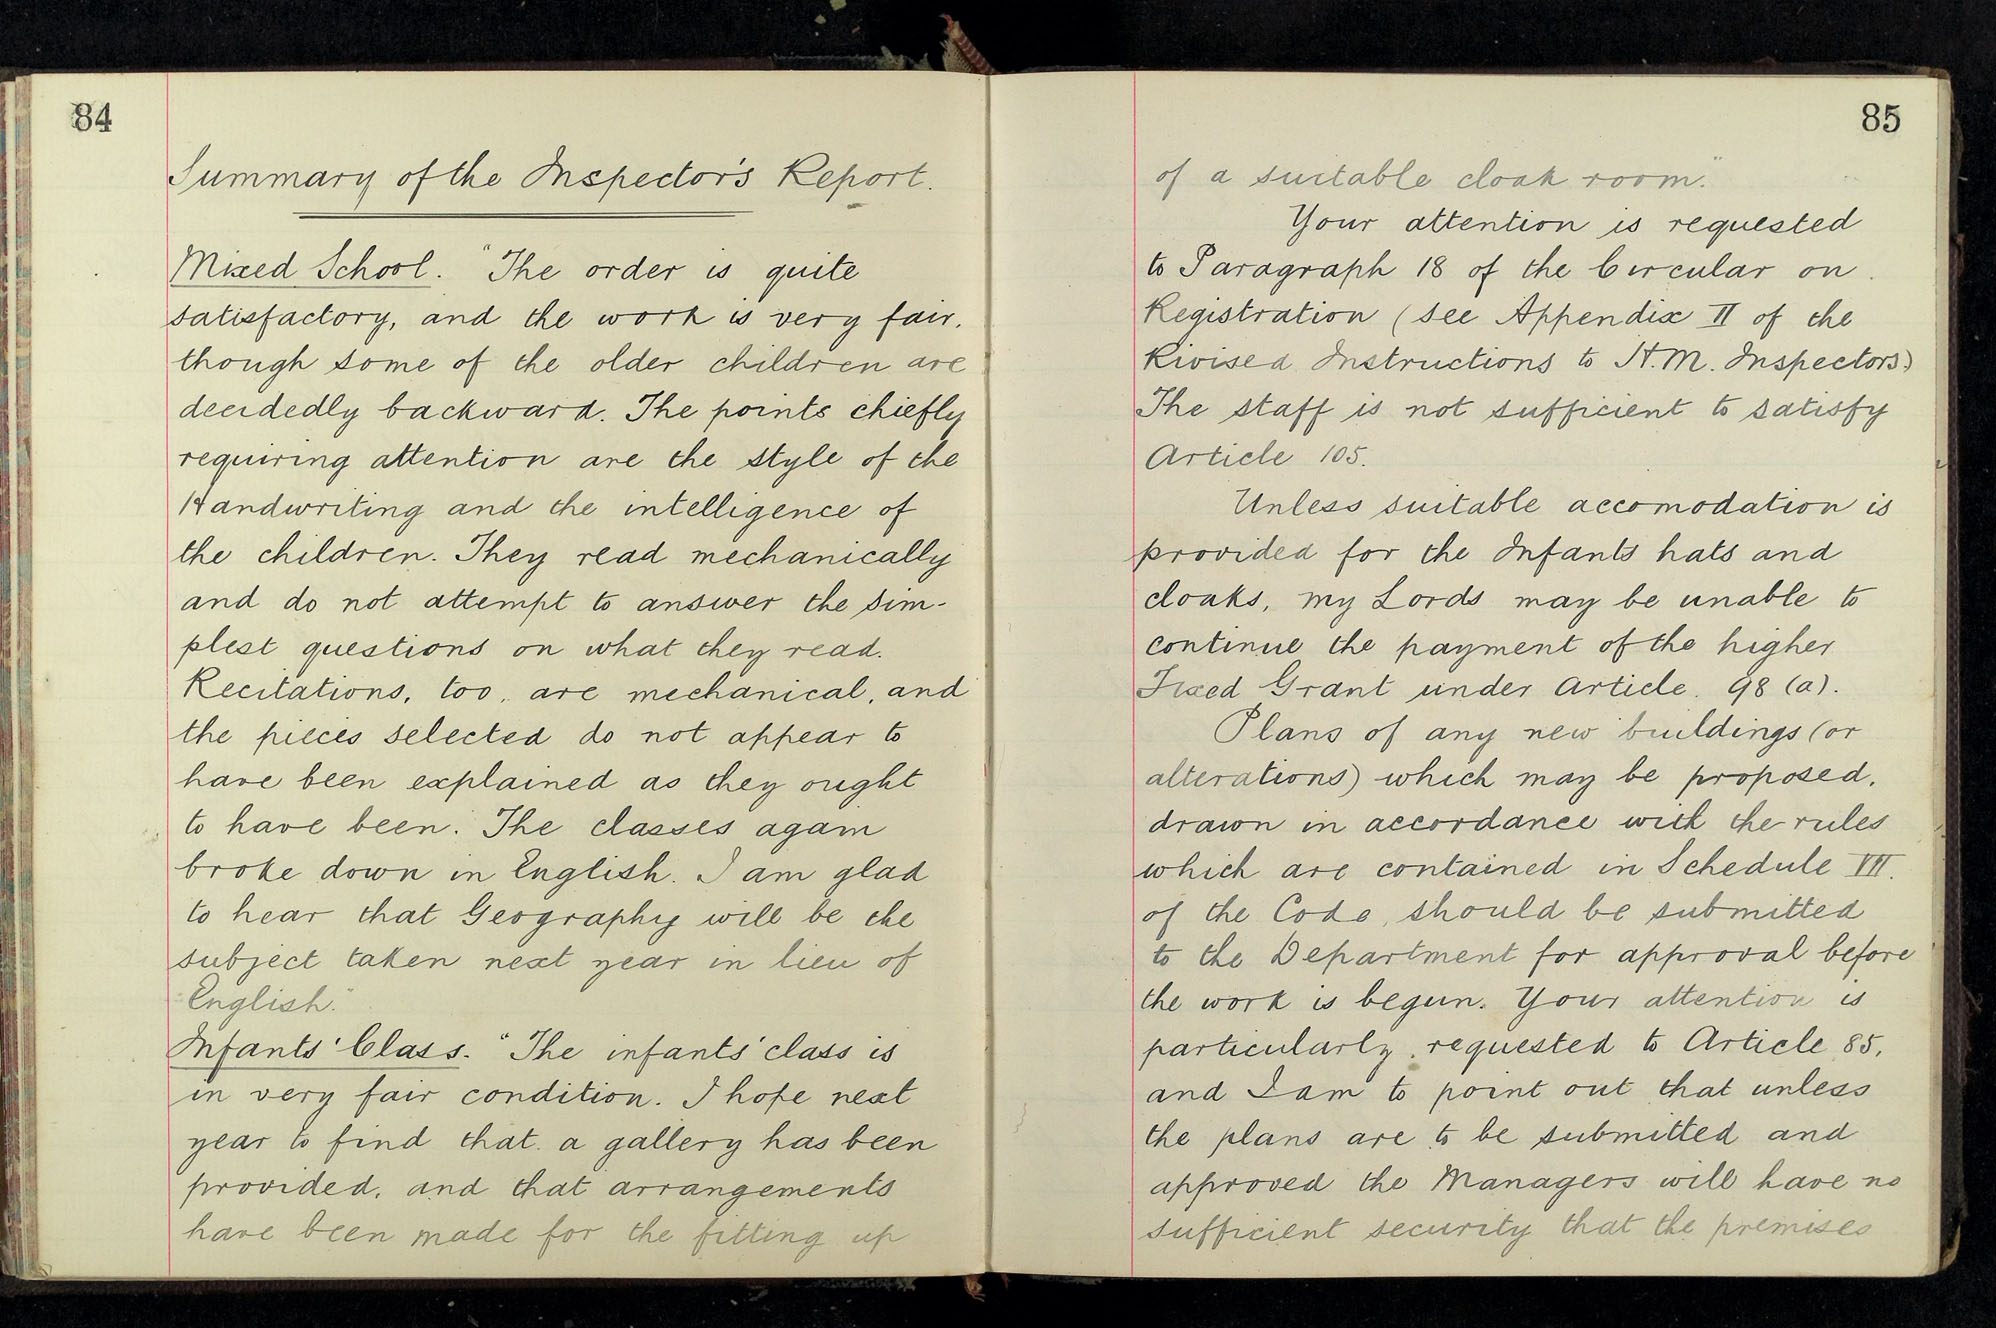 84
Summary of the Inspector's Report.
Mixed School. "The order is quite
satisfactory, and the work is very fair,
though some of the older children are
decidedly backward. The points chiefly
requiring attention are the style of the
Handwriting and the intelligence of
the children. They read mechanically
and do not attempt to answer the sim-
plest questions on what they read.
Recitations, too, are mechanical, and
the pieces selected do not appear to
have been explained as they ought
to have been. The classes again
broke down in English. I am glad
to hear that Geography will be the
subject taken next year in lieu of
English."
Infants' Class. "The infants' class is
in very fair condition. I hope next
year to find that a gallery has been
provided, and that arrangements
have been made for the fitting up
85
of a suitable cloak room."
Your attention is requested
to Paragraph 18 of the Circular on
Registration (see Appendix II of the
Rivised Instructions to H.M. Inspectors)
The staff is not sufficient to satisfy
Article 105.
Unless suitable accomodation is
provided for the Infants hats and
cloaks, my Lords may be unable to
continue the payment of the higher
Fixed Grant under Article. 98 (a).
Plans of any new buildings (or
alterations) which may be proposed,
drawn in accordance with the rules
which are contained in Schedule VII.
of the Code, should be submitted
to the Department for approval before
the work is begun. Your attention is
particularly requested to Article 85,
and I am to point out that unless
the plans are to be submitted and
approved the Managers will have no
sufficient security that the premises